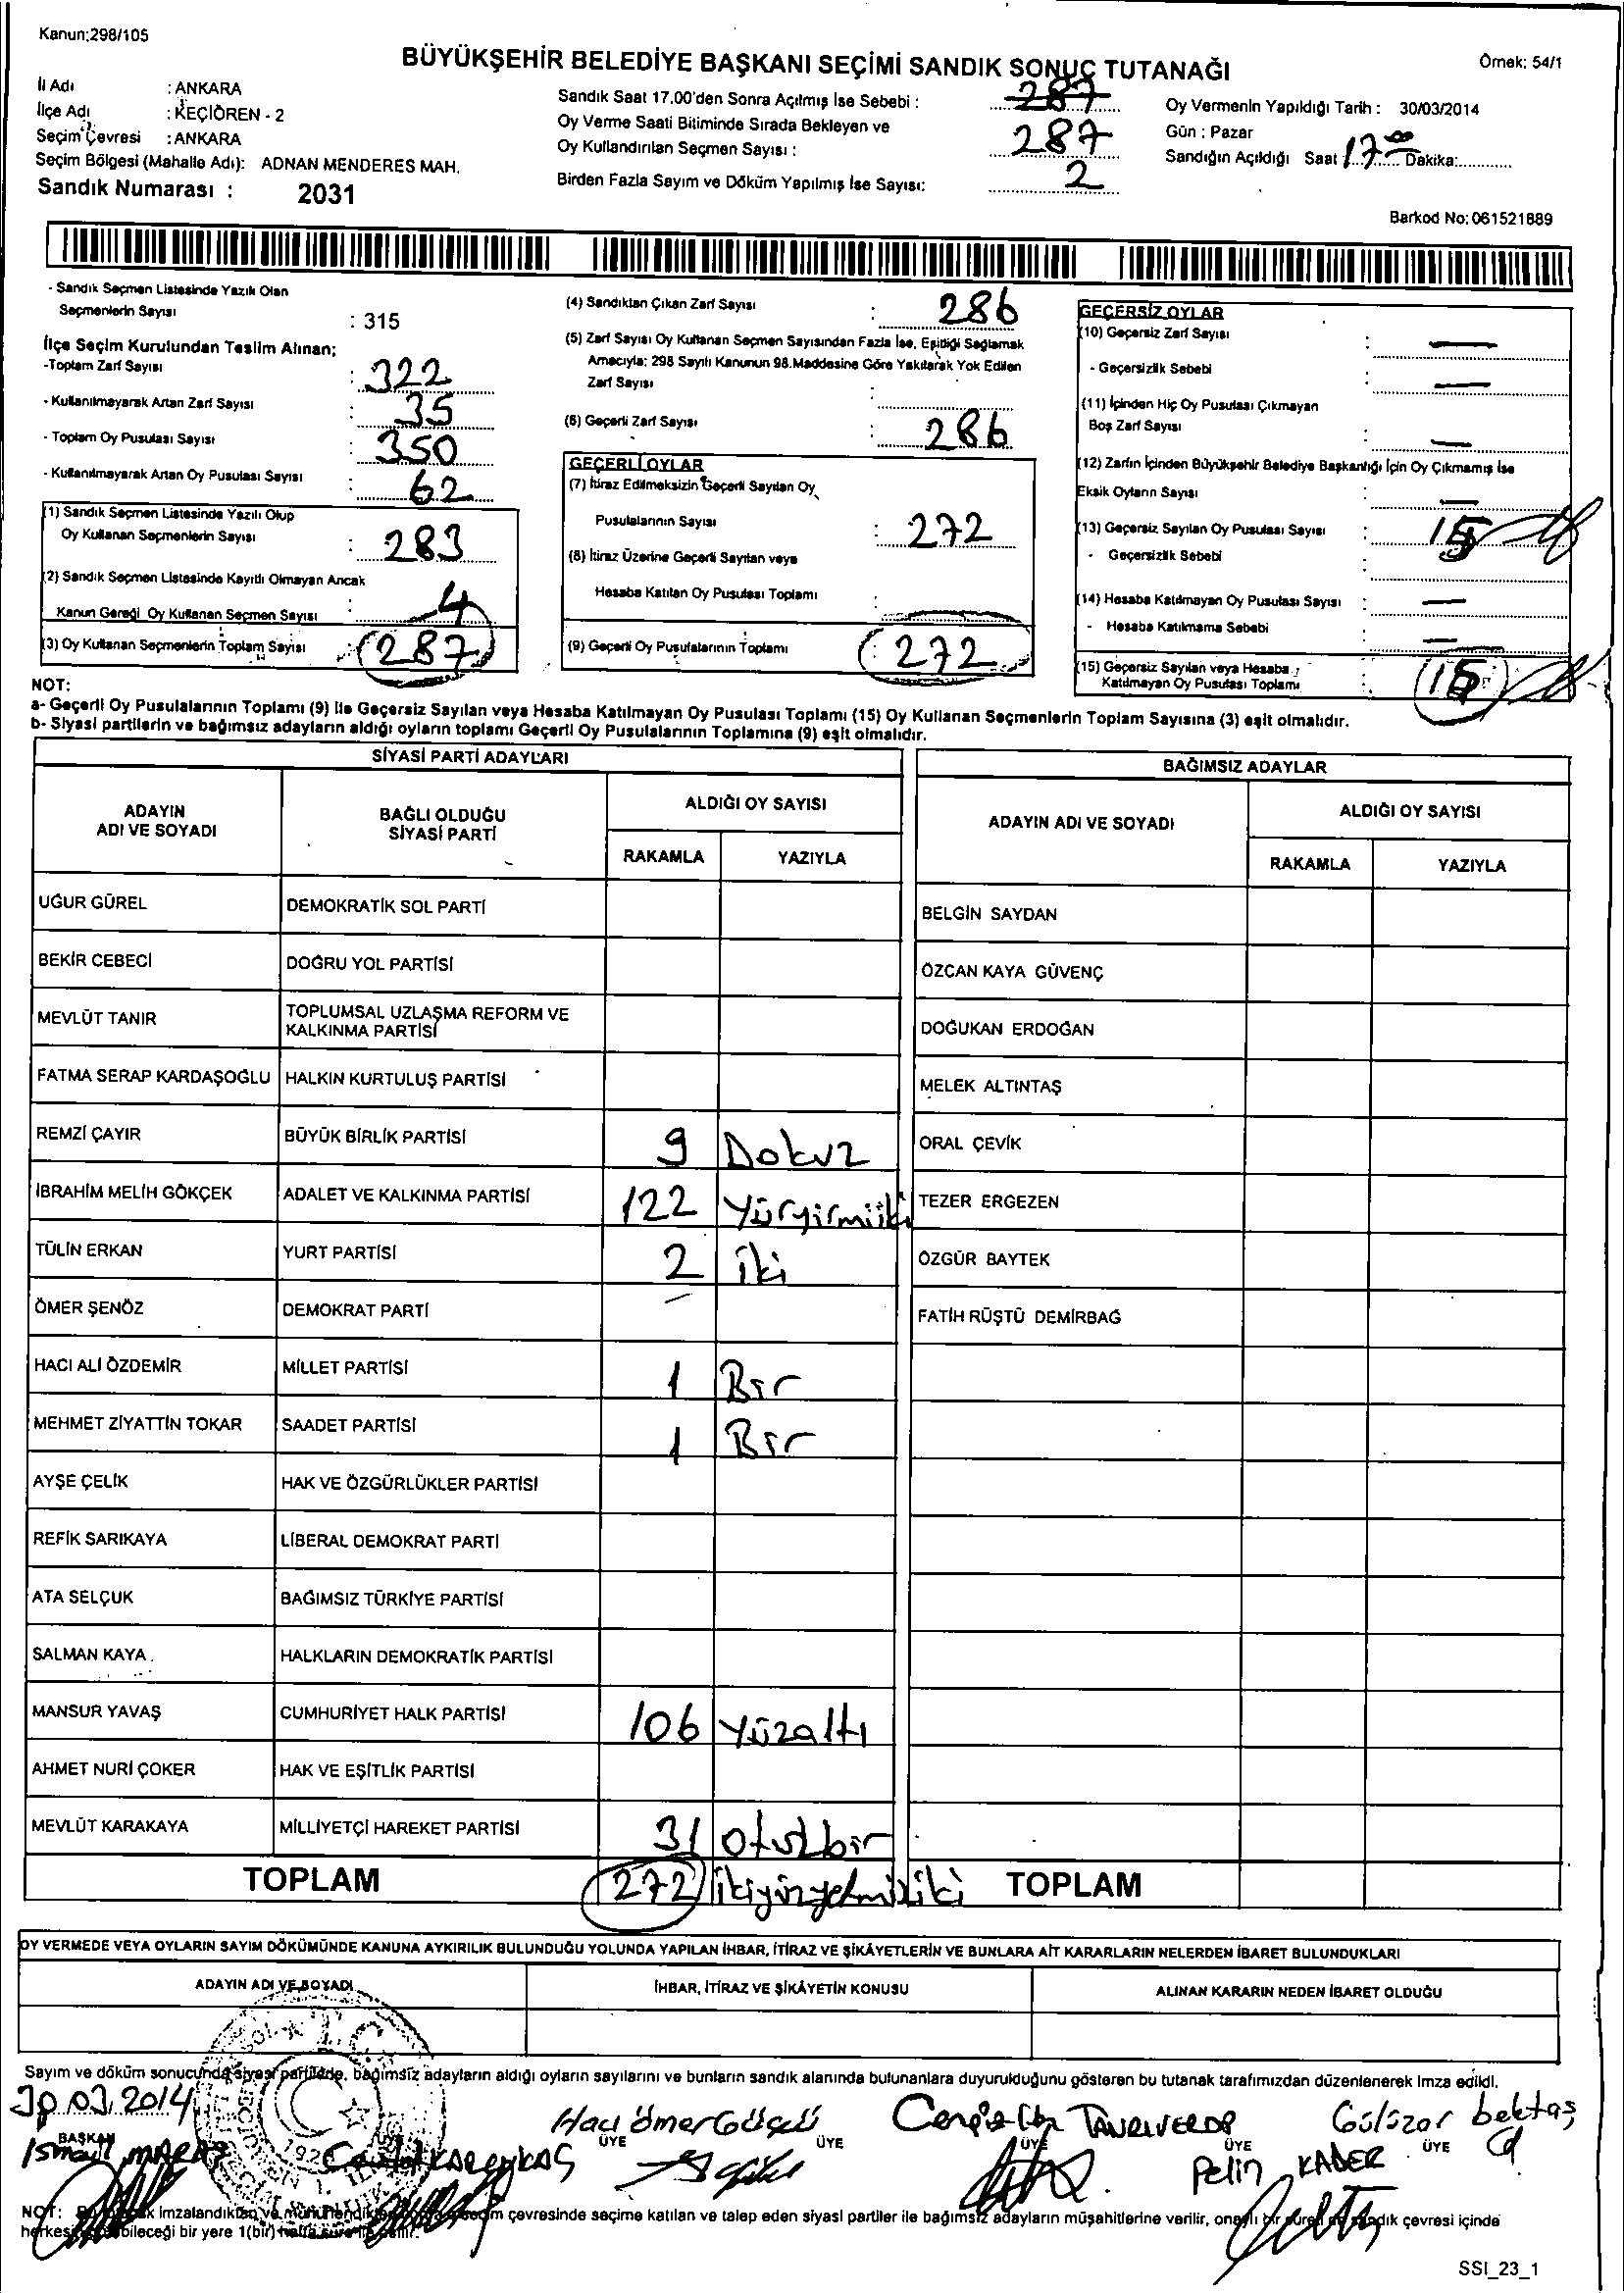 Kanun;298/105
BÜYÜKŞEHİR BELEDİYE BAŞKANI SEÇİMİ SANDIK SONUÇ TUTANAĞI
Örnek: 54/1
İl Adı : ANKARA
İlçe Adı : KEÇİÖREN - 2
Seçim Çevresi : ANKARA
Seçim Bölgesi (Mahalle Adı): ADNAN MENDERES MAH.
Sandık Numarası : 2031
Sandık Saat 17.00'den Sonra Açılmış İse Sebebi : 287
Oy Verme Saati Bitiminde Sırada Bekleyen ve
Oy Kullandırılan Seçmen Sayısı : 287
Birden Fazla Sayım ve Döküm Yapılmış İse Sayısı: 2
Oy Vermenin Yapıldığı Tarih : 30/03/2014
Gün : Pazar
Sandığın Açıldığı Saat 17.00 Dakika:
Barkod No: 061521889
- Sandık Seçmen Listesinde Yazılı Olan
Seçmenlerin Sayısı : 315
İlçe Seçim Kurulundan Teslim Alınan;
-Toplam Zarf Sayısı : 322
- Kullanılmayarak Artan Zarf Sayısı : 35
- Toplam Oy Pusulası Sayısı : 350
- Kullanılmayarak Artan Oy Pusulası Sayısı : 62
(1) Sandık Seçmen Listesinde Yazılı Olup
Oy Kullanan Seçmenlerin Sayısı : 283
(2) Sandık Seçmen Listesinde Kayıtlı Olmayan Ancak
Kanun Gereği Oy Kullanan Seçmen Sayısı : 4
(3) Oy Kullanan Seçmenlerin Toplam Sayısı : 287
(4) Sandıktan Çıkan Zarf Sayısı : 286
(5) Zarf Sayısı Oy Kullanan Seçmen Sayısından Fazla İse, Eşitliği Sağlamak
Amacıyla; 298 Sayılı Kanunun 98.Maddesine Göre Yakılarak Yok Edilen
Zarf Sayısı :
(6) Geçerli Zarf Sayısı : 286
GEÇERLİ OYLAR
(7) İtiraz Edilmeksizin Geçerli Sayılan Oy
Pusulalarının Sayısı : 272
(8) İtiraz Üzerine Geçerli Sayılan veya
Hesaba Katılan Oy Pusulası Toplamı :
(9) Geçerli Oy Pusulalarının Toplamı : 272
GEÇERSİZ OYLAR
(10) Geçersiz Zarf Sayısı : —
- Geçersizlik Sebebi : —
(11) İçinden Hiç Oy Pusulası Çıkmayan
Boş Zarf Sayısı : —
(12) Zarfın İçinden Büyükşehir Belediye Başkanlığı İçin Oy Çıkmamış İse
Eksik Oyların Sayısı : —
(13) Geçersiz Sayılan Oy Pusulası Sayısı : 15
- Geçersizlik Sebebi :
(14) Hesaba Katılmayan Oy Pusulası Sayısı : —
- Hesaba Katılmama Sebebi : —
(15) Geçersiz Sayılan veya Hesaba
Katılmayan Oy Pusulası Toplamı : 15
NOT:
a- Geçerli Oy Pusulalarının Toplamı (9) ile Geçersiz Sayılan veya Hesaba Katılmayan Oy Pusulası Toplamı (15) Oy Kullanan Seçmenlerin Toplam Sayısına (3) eşit olmalıdır.
b- Siyasi partilerin ve bağımsız adayların aldığı oyların toplamı Geçerli Oy Pusulalarının Toplamına (9) eşit olmalıdır.
SİYASİ PARTİ ADAYLARI
ADAYIN ADI VE SOYADI
BAĞLI OLDUĞU SİYASİ PARTİ
ALDIĞI OY SAYISI
RAKAMLA YAZIYLA
UĞUR GÜREL DEMOKRATİK SOL PARTİ
BEKİR CEBECİ DOĞRU YOL PARTİSİ
MEVLÜT TANIR TOPLUMSAL UZLAŞMA REFORM VE KALKINMA PARTİSİ
FATMA SERAP KARDAŞOĞLU HALKIN KURTULUŞ PARTİSİ
REMZİ ÇAYIR BÜYÜK BİRLİK PARTİSİ 9 Dokuz
İBRAHİM MELİH GÖKÇEK ADALET VE KALKINMA PARTİSİ 122 Yüzyirmiiki
TÜLİN ERKAN YURT PARTİSİ 2 iki
ÖMER ŞENÖZ DEMOKRAT PARTİ —
HACI ALİ ÖZDEMİR MİLLET PARTİSİ 1 Bir
MEHMET ZİYATTİN TOKAR SAADET PARTİSİ 1 Bir
AYŞE ÇELİK HAK VE ÖZGÜRLÜKLER PARTİSİ
REFİK SARIKAYA LİBERAL DEMOKRAT PARTİ
ATA SELÇUK BAĞIMSIZ TÜRKİYE PARTİSİ
SALMAN KAYA HALKLARIN DEMOKRATİK PARTİSİ
MANSUR YAVAŞ CUMHURİYET HALK PARTİSİ 106 Yüzaltı
AHMET NURİ ÇOKER HAK VE EŞİTLİK PARTİSİ
MEVLÜT KARAKAYA MİLLİYETÇİ HAREKET PARTİSİ 31 Otuzbir
TOPLAM 272 ikiyüzyetmişiki
BAĞIMSIZ ADAYLAR
ADAYIN ADI VE SOYADI
ALDIĞI OY SAYISI
RAKAMLA YAZIYLA
BELGİN SAYDAN
ÖZCAN KAYA GÜVENÇ
DOĞUKAN ERDOĞAN
MELEK ALTINTAŞ
ORAL ÇEVİK
TEZER ERGEZEN
ÖZGÜR BAYTEK
FATİH RÜŞTÜ DEMİRBAĞ
TOPLAM
OY VERMEDE VEYA OYLARIN SAYIM DÖKÜMÜNDE KANUNA AYKIRILIK BULUNDUĞU YOLUNDA YAPILAN İHBAR, İTİRAZ VE ŞİKÂYETLERİN VE BUNLARA AİT KARARLARIN NELERDEN İBARET BULUNDUKLARI
ADAYIN ADI VE SOYADI
İHBAR, İTİRAZ VE ŞİKÂYETİN KONUSU
ALINAN KARARIN NEDEN İBARET OLDUĞU
Sayım ve döküm sonucunda siyasi partilerle, bağımsız adayların aldığı oyların sayılarını ve bunların sandık alanında bulunanlara duyurulduğunu gösteren bu tutanak tarafımızdan düzenlenerek imza edildi.
30.03.2014
Hacı Ömer Güçlü
TANRIVERDİ
Gülüzar bektaş
BAŞKAN ÜYE ÜYE ÜYE ÜYE ÜYE
İsmail
Pelin KADER
NOT: imzalandıktan ve mühürlendikten çevresinde seçime katılan ve talep eden siyasi partiler ile bağımsız adayların müşahitlerine verilir, onaylı bir sureti de sandık çevresi içinde
bileceği bir yere 1(bir) hafta süre ile asılır.
SSI_23_1